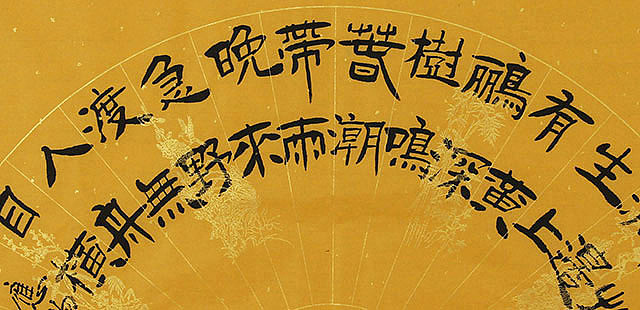 生上
有黃
鸝深
樹鳴
春潮
帶雨
晚來
急野
渡無
人舟
自橫